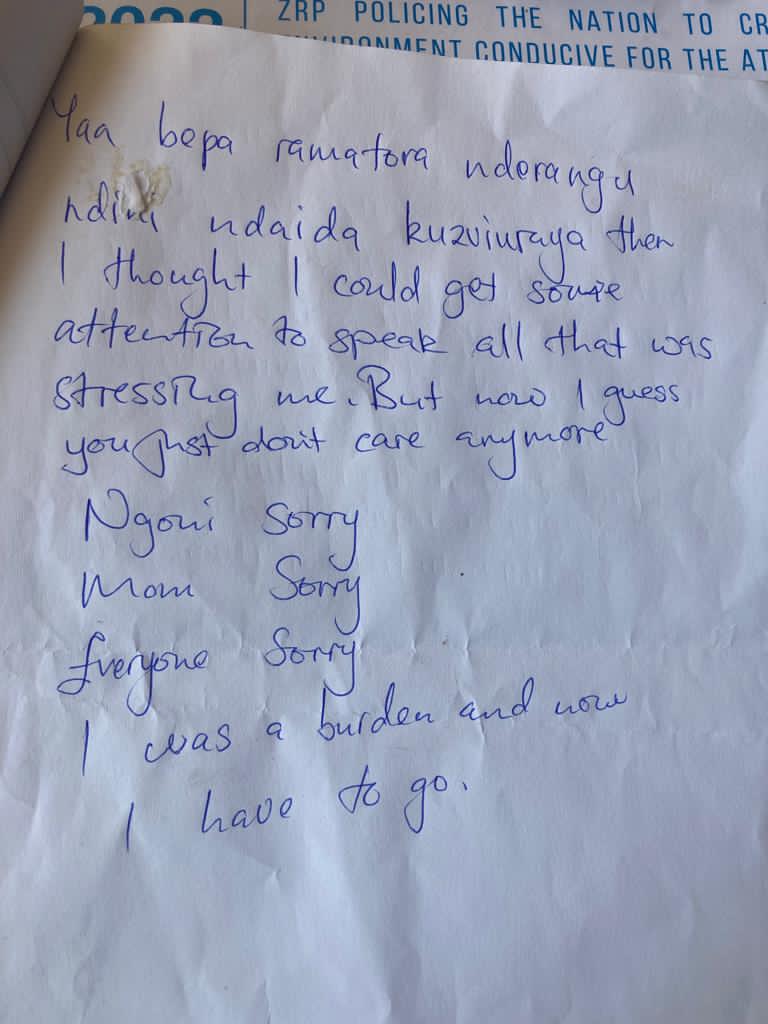 2023
ZRP POLICING THE NATION TO CR
ENVIRONMENT CONDUCIVE FOR THE AT
Yaa bepa ramatora nderangu
ndini ndaida kuzviuraya then
I thought I could get some
attention to speak all that was
stressing me. But now I guess
you just don't care anymore
Ngoni Sorry
Mom Sorry
Everyone Sorry
I was a burden and now
I have to go.